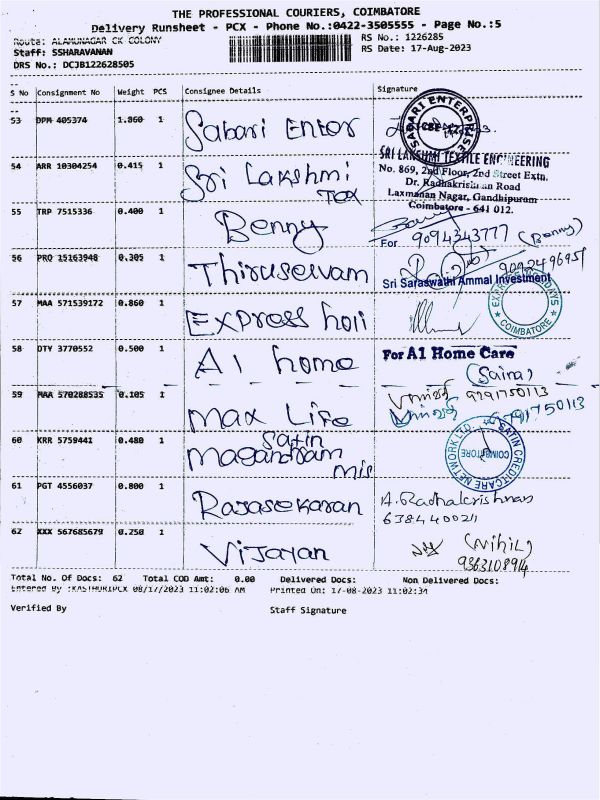 THE PROFESSIONAL COURIERS, COIMBATORE
Delivery Runsheet - PCX - Phone No.:0422-3505555 - Page No.:5
Route: ALAMUNAGAR CK COLONY
RS No.: 1226285
Staff: SSHARAVANAN
RS Date: 17-Aug-2023
DRS No.: DCJB122628505
S No Consignment No Weight PCS Consignee Details Signature
53 DPM 405374 1.860 1 Sabari Enter
SABARI ENTERPRISE
CBE
54 ARR 10304254 0.415 1 Sri Lakshmi Tex
SRI LAKSHMI TEXTILE ENGINEERING
No. 869, 2nd Floor, 2nd Street Extn.
Dr. Radhakrishnan Road
Laxmanan Nagar, Gandhipuram
Coimbatore - 641 012.
55 TRP 7515336 0.400 1 Benny
9094343777 (Benny)
56 PRO 15163948 0.305 1 Thiruselvam
For
9092496951
Sri Saraswathi Ammal Investment
57 MAA 571539172 0.860 1 Express holi
DAYS
COIMBATORE
58 DTY 3770552 0.500 1 A1 home
For A1 Home Care
(Saira)
59 MAA 570288535 0.105 1 Max Life
9791750113
9791750113
60 KRR 5759441 0.480 1 Satin
SATIN CREDITCARE NETWORK LTD.
COIMBATORE
61 PGT 4556037 0.800 1 Rajasekaran
A. Radhakrishnan
6384400211
62 XXX 567685679 0.250 1 Vijayan
(Nihil)
9363108914
Total No. Of Docs: 62 Total COD Amt: 0.00 Delivered Docs: Non Delivered Docs:
Entered By :KASTHURIPCX 08/17/2023 11:02:06 AM Printed On: 17-08-2023 11:02:34
Verified By Staff Signature